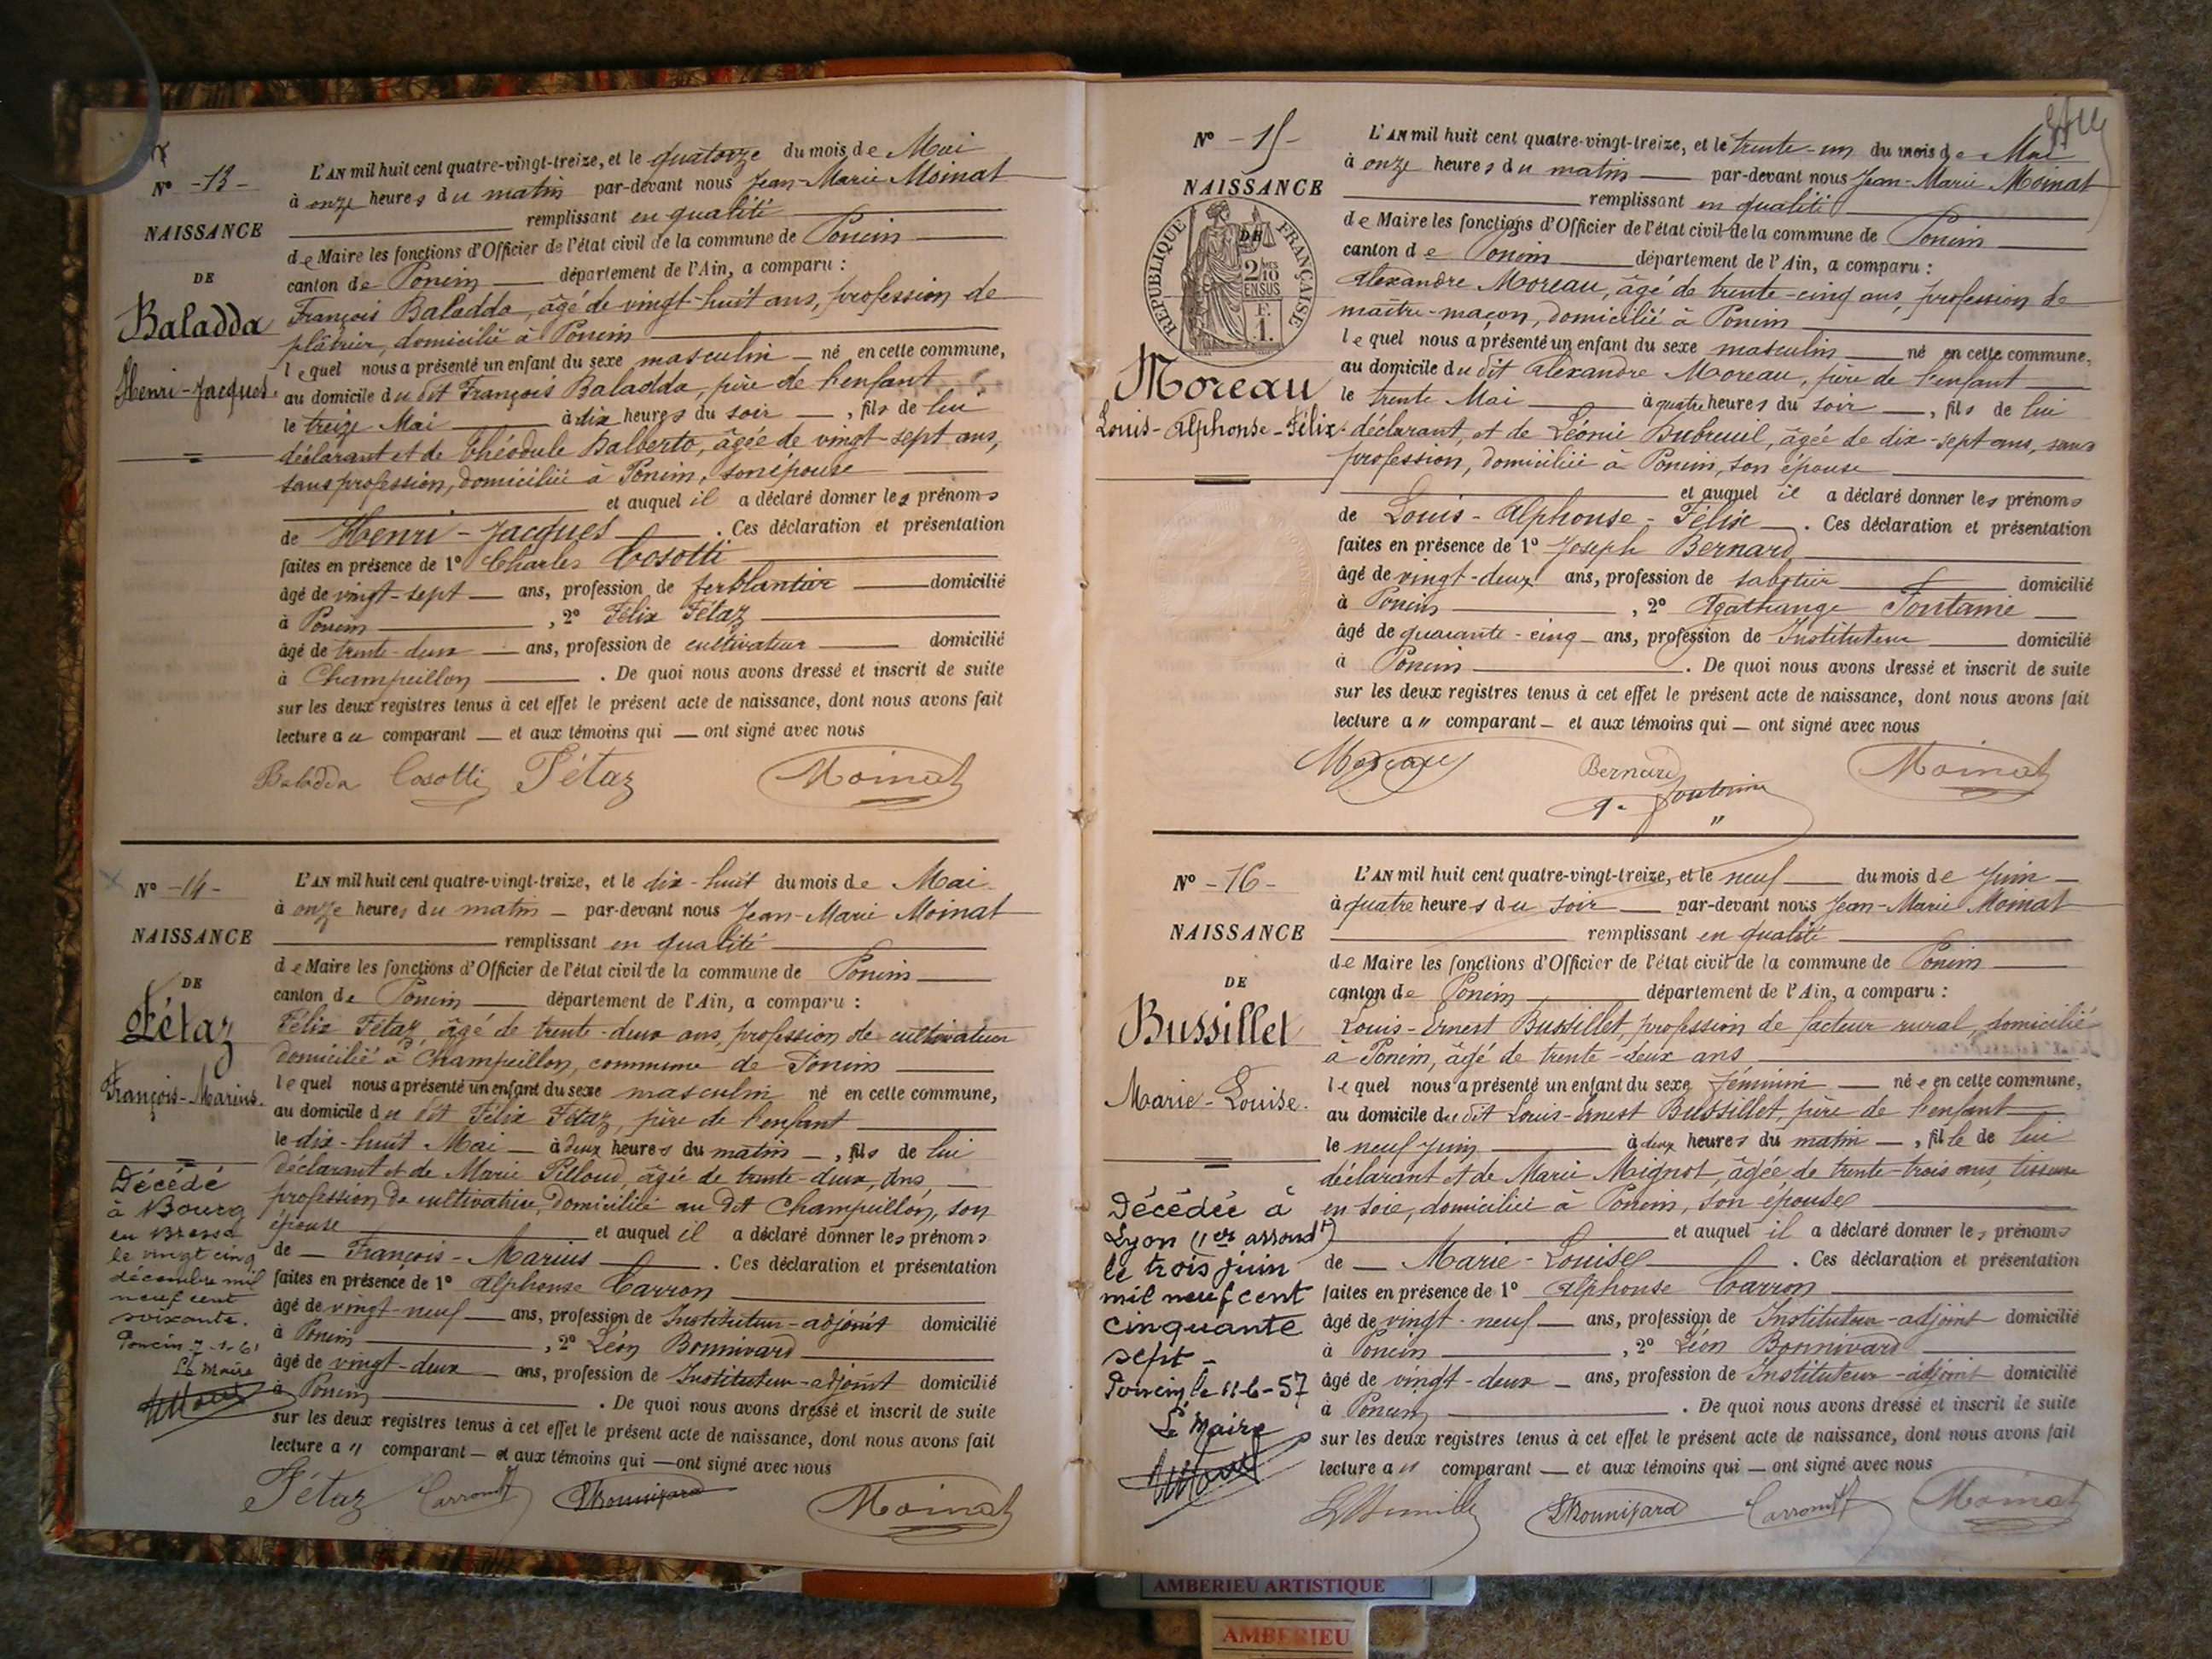 N° -13-
NAISSANCE
DE
Baladda
Henri-Jacques.
L'AN mil huit cent quatre-vingt-treize, et le quatorze du mois de Mai
à onze heures du matin par-devant nous Jean-Marie Moinat
remplissant en qualité
de Maire les fonctions d'Officier de l'état civil de la commune de Poncin
canton de Poncin département de l'Ain, a comparu :
François Baladda, âgé de vingt-huit ans, profession de
plâtrier, domicilié à Poncin
lequel nous a présenté un enfant du sexe masculin né en cette commune,
au domicile du dit François Baladda, père de l'enfant
le treize Mai à dix heures du soir, fils de lui
déclarant et de Théodule Balberto, âgée de vingt-sept ans,
sans profession, domiciliée à Poncin, son épouse
et auquel il a déclaré donner les prénoms
de Henri-Jacques. Ces déclaration et présentation
faites en présence de 1° Charles Cosotti
âgé de vingt-sept ans, profession de ferblantier domicilié
à Poncin, 2° Félix Fétaz
âgé de trente-deux ans, profession de cultivateur domicilié
à Champeillon. De quoi nous avons dressé et inscrit de suite
sur les deux registres tenus à cet effet le présent acte de naissance, dont nous avons fait
lecture au comparant et aux témoins qui ont signé avec nous
Baladda Cosotti Fétaz Moinat
N° -14-
NAISSANCE
DE
Fétaz
François-Marius.
Décédé
à Bourg
en Bresse
le vingt cinq
décembre mil
neuf cent
soixante.
Poncin 7-1-61
Le Maire
L'AN mil huit cent quatre-vingt-treize, et le dix-huit du mois de Mai
à onze heures du matin par-devant nous Jean-Marie Moinat
remplissant en qualité
de Maire les fonctions d'Officier de l'état civil de la commune de Poncin
canton de Poncin département de l'Ain, a comparu :
Félix Fétaz, âgé de trente-deux ans, profession de cultivateur
domicilié à Champeillon, commune de Poncin
lequel nous a présenté un enfant du sexe masculin né en cette commune,
au domicile du dit Félix Fétaz, père de l'enfant
le dix-huit Mai à deux heures du matin, fils de lui
déclarant et de Marie Pilloud, âgée de trente-deux ans,
profession de cultivatrice, domiciliée au dit Champeillon, son
épouse et auquel il a déclaré donner les prénoms
de François-Marius. Ces déclaration et présentation
faites en présence de 1° Alphonse Carron
âgé de vingt-neuf ans, profession de Instituteur-adjoint domicilié
à Poncin, 2° Léon Bonnivard
âgé de vingt-deux ans, profession de Instituteur-adjoint domicilié
à Poncin. De quoi nous avons dressé et inscrit de suite
sur les deux registres tenus à cet effet le présent acte de naissance, dont nous avons fait
lecture a " comparant et aux témoins qui ont signé avec nous
Fétaz Carron LBonnivard Moinat
N° -15-
NAISSANCE
DE
RÉPUBLIQUE FRANÇAISE
2/10 EN SUS
F. 1.
Moreau
Louis-Alphonse-Félix.
L'AN mil huit cent quatre-vingt-treize, et le trente-un du mois de Mai
à onze heures du matin par-devant nous Jean-Marie Moinat
remplissant en qualité
de Maire les fonctions d'Officier de l'état civil de la commune de Poncin
canton de Poncin département de l'Ain, a comparu :
Alexandre Moreau, âgé de trente-cinq ans, profession de
maître-maçon, domicilié à Poncin
lequel nous a présenté un enfant du sexe masculin né en cette commune,
au domicile du dit Alexandre Moreau, père de l'enfant
le trente Mai à quatre heures du soir, fils de lui
déclarant, et de Léonie Dubreuil, âgée de dix-sept ans, sans
profession, domiciliée à Poncin, son épouse
et auquel il a déclaré donner les prénoms
de Louis-Alphonse-Félix. Ces déclaration et présentation
faites en présence de 1° Joseph Bernard
âgé de vingt-deux ans, profession de sabotier domicilié
à Poncin, 2° Agathange Fontaine
âgé de quarante-cinq ans, profession de Instituteur domicilié
à Poncin. De quoi nous avons dressé et inscrit de suite
sur les deux registres tenus à cet effet le présent acte de naissance, dont nous avons fait
lecture a " comparant et aux témoins qui ont signé avec nous
Moreau Bernard Moinat
A. Fontaine
N° -16-
NAISSANCE
DE
Bussillet
Marie-Louise.
Décédée à
Lyon (1er arrondt)
le trois juin
mil neuf cent
cinquante
sept -
Poncin, le 11-6-57
Le Maire
L'AN mil huit cent quatre-vingt-treize, et le neuf du mois de Juin
à quatre heures du soir par-devant nous Jean-Marie Moinat
remplissant en qualité
de Maire les fonctions d'Officier de l'état civil de la commune de Poncin
canton de Poncin département de l'Ain, a comparu :
Louis-Ernest Bussillet, profession de facteur rural, domicilié
à Poncin, âgé de trente-deux ans
lequel nous a présenté un enfant du sexe féminin née en cette commune,
au domicile du dit Louis-Ernest Bussillet, père de l'enfant
le neuf Juin à deux heures du matin, fille de lui
déclarant et de Marie Mugnot, âgée de trente-trois ans, tisseuse
en soie, domiciliée à Poncin, son épouse
et auquel il a déclaré donner les prénoms
de Marie-Louise. Ces déclaration et présentation
faites en présence de 1° Alphonse Carron
âgé de vingt-neuf ans, profession de Instituteur-adjoint domicilié
à Poncin, 2° Léon Bonnivard
âgé de vingt-deux ans, profession de Instituteur-adjoint domicilié
à Poncin. De quoi nous avons dressé et inscrit de suite
sur les deux registres tenus à cet effet le présent acte de naissance, dont nous avons fait
lecture a " comparant et aux témoins qui ont signé avec nous
LBonnivard Carron Moinat
AMBERIEU ARTISTIQUE
AMBERIEU